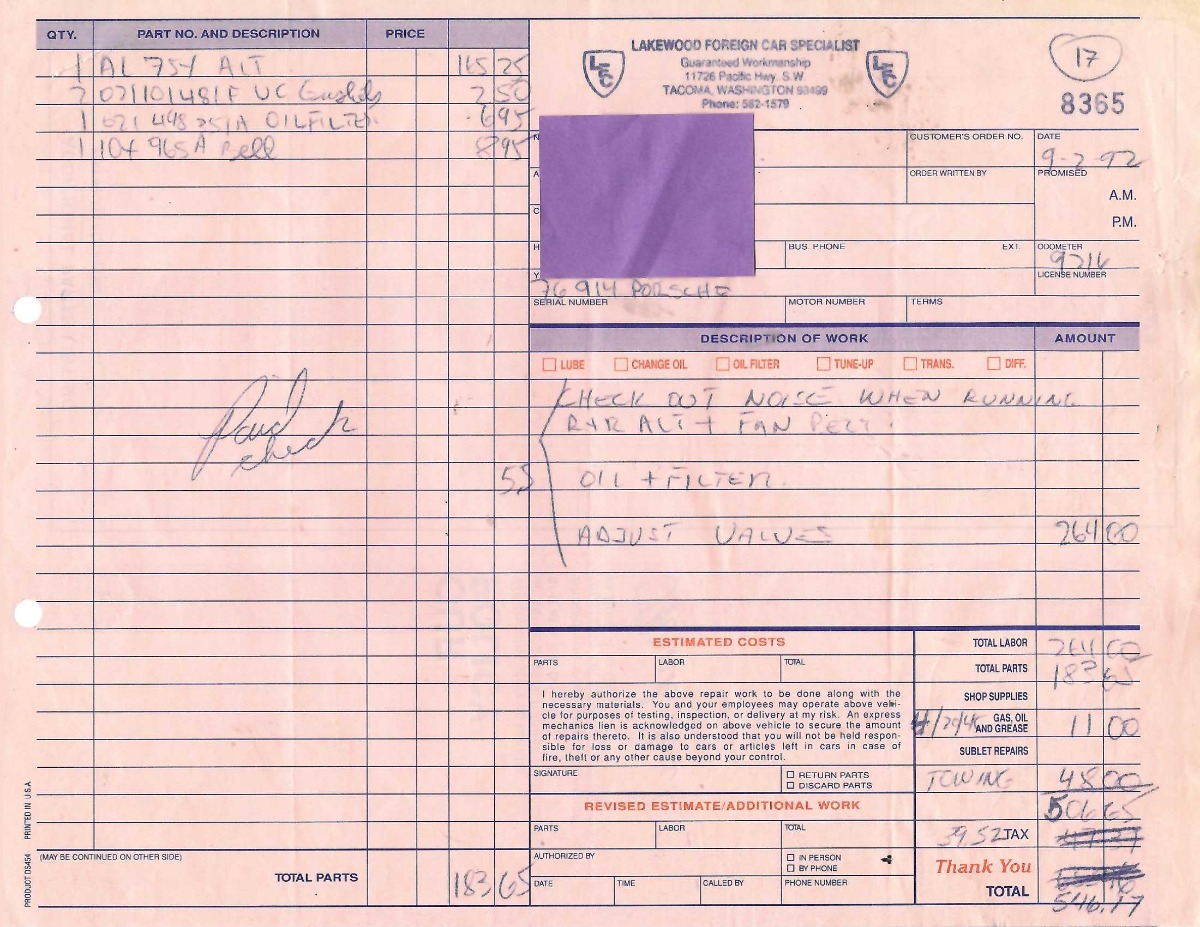 QTY. PART NO. AND DESCRIPTION PRICE
1 AL 75Y ALT 165 25
2 021101481F VC Gaskets 2 50
1 021 448 351A OIL FILTER 6 95
1 104 965A Belt 8 95
Paid
check
55
(MAY BE CONTINUED ON OTHER SIDE)
TOTAL PARTS 183 65
PRODUCT DS454 PRINTED IN U.S.A
LAKEWOOD FOREIGN CAR SPECIALIST
LFC
Guaranteed Workmanship
LFC
11726 Pacific Hwy. S.W.
TACOMA, WASHINGTON 98499
Phone: 582-1579
17
8365
CUSTOMER'S ORDER NO. DATE
9-2-92
ORDER WRITTEN BY PROMISED
A.M.
P.M.
BUS. PHONE EXT. ODOMETER
9216
LICENSE NUMBER
76 914 PORSCHE
SERIAL NUMBER MOTOR NUMBER TERMS
DESCRIPTION OF WORK AMOUNT
LUBE CHANGE OIL OIL FILTER TUNE-UP TRANS. DIFF.
CHECK OUT NOISE WHEN RUNNING
R+R ALT + FAN BELT.
OIL + FILTER.
ADJUST VALVES 264 00
ESTIMATED COSTS
PARTS LABOR TOTAL
I hereby authorize the above repair work to be done along with the
necessary materials. You and your employees may operate above vehi-
cle for purposes of testing, inspection, or delivery at my risk. An express
mechanics lien is acknowledged on above vehicle to secure the amount
of repairs thereto. It is also understood that you will not be held respon-
sible for loss or damage to cars or articles left in cars in case of
fire, theft or any other cause beyond your control.
SIGNATURE RETURN PARTS
DISCARD PARTS
REVISED ESTIMATE/ADDITIONAL WORK
PARTS LABOR TOTAL
AUTHORIZED BY IN PERSON
BY PHONE
DATE TIME CALLED BY PHONE NUMBER
TOTAL LABOR 264 00
TOTAL PARTS 183 65
SHOP SUPPLIES
GAS, OIL
AND GREASE 11 00
SUBLET REPAIRS
TOWING 48 00
506 65
39.52 TAX
Thank You
TOTAL
546.17